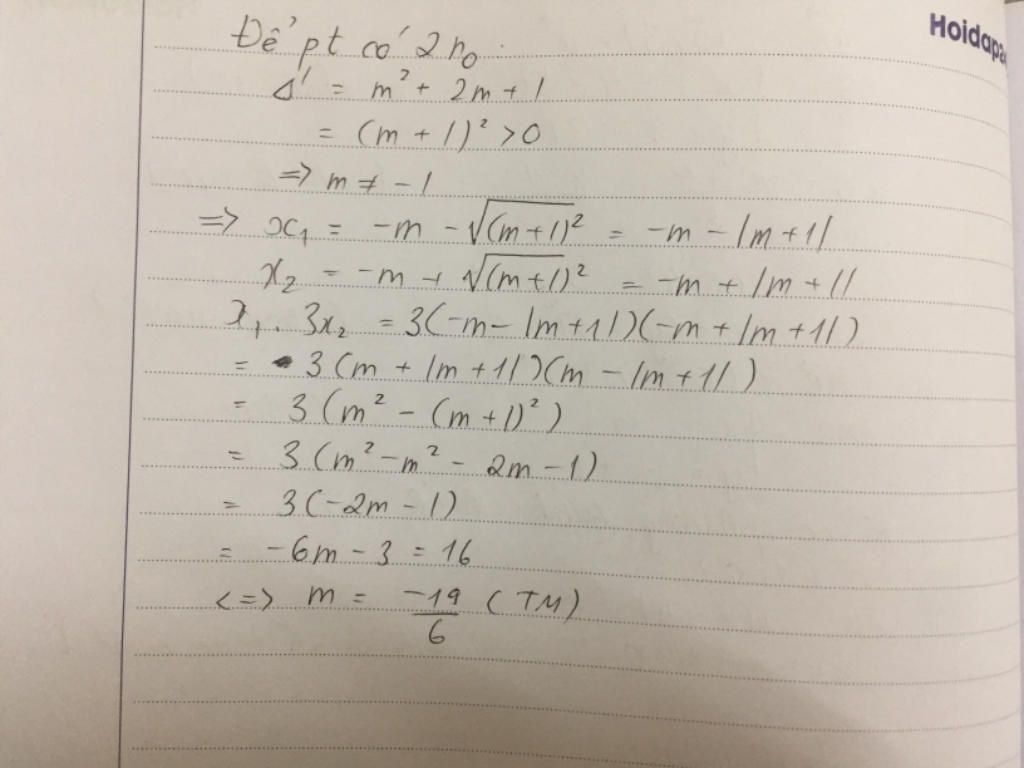 Hoidap
Để pt có 2 n₀ :
Δ' = m² + 2m + 1
= (m + 1)² > 0
=> m ≠ -1
=> x₁ = -m - √(m+1)² = -m - |m+1|
x₂ = -m + √(m+1)² = -m + |m+1|
x₁ . 3x₂ = 3(-m - |m+1|)(-m + |m+1|)
= 3(m + |m+1|)(m - |m+1|)
= 3(m² - (m+1)²)
= 3(m² - m² - 2m - 1)
= 3(-2m - 1)
= -6m - 3 = 16
<=> m = -19/6 (TM)